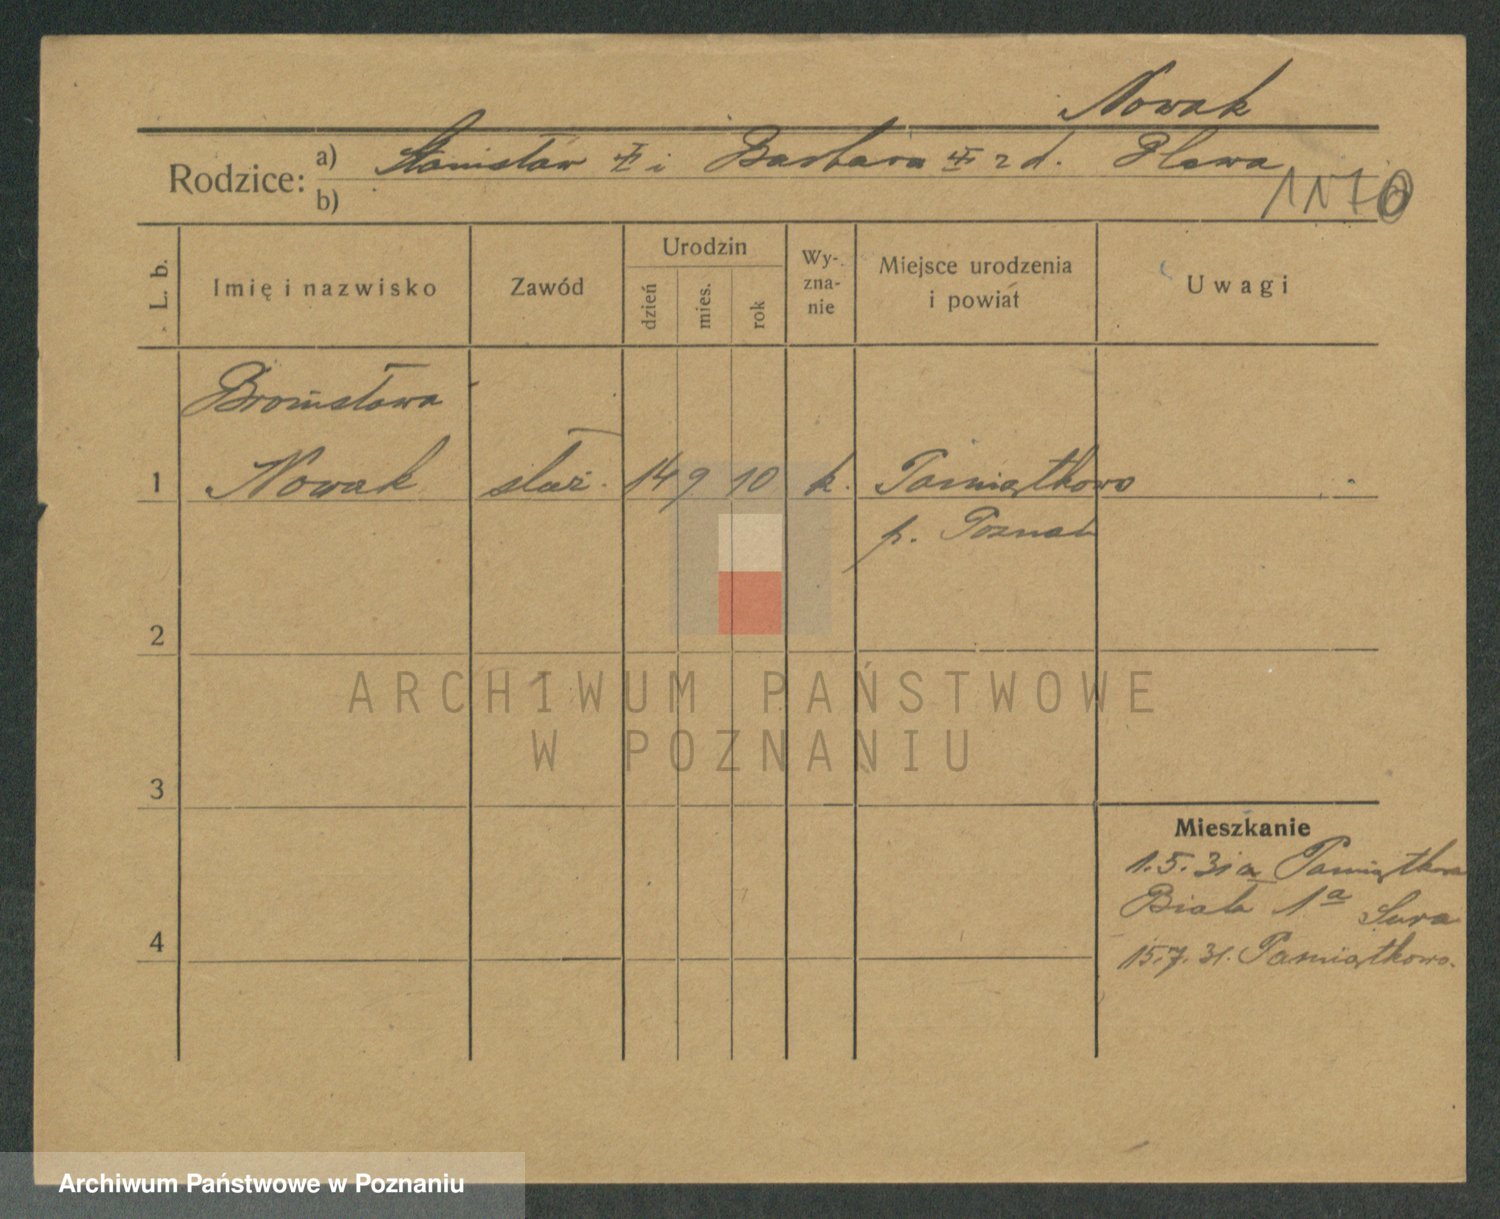 Nowak
Rodzice: a) Stanisław i Barbara z d. Plewa
b)
1170
L. b.
Imię i nazwisko
Zawód
Urodzin
dzień
mies.
rok
Wy-
zna-
nie
Miejsce urodzenia
i powiat
Uwagi
Bronisława
1 Nowak służ. 14 9 10 k. Pamiątkowo
p. Poznań
2
3
4
Mieszkanie
1.5.31 a Pamiątkowa
Biała 1a
15.7.31. Pamiątkowo.
ARCHIWUM PAŃSTWOWE
W POZNANIU
Archiwum Państwowe w Poznaniu